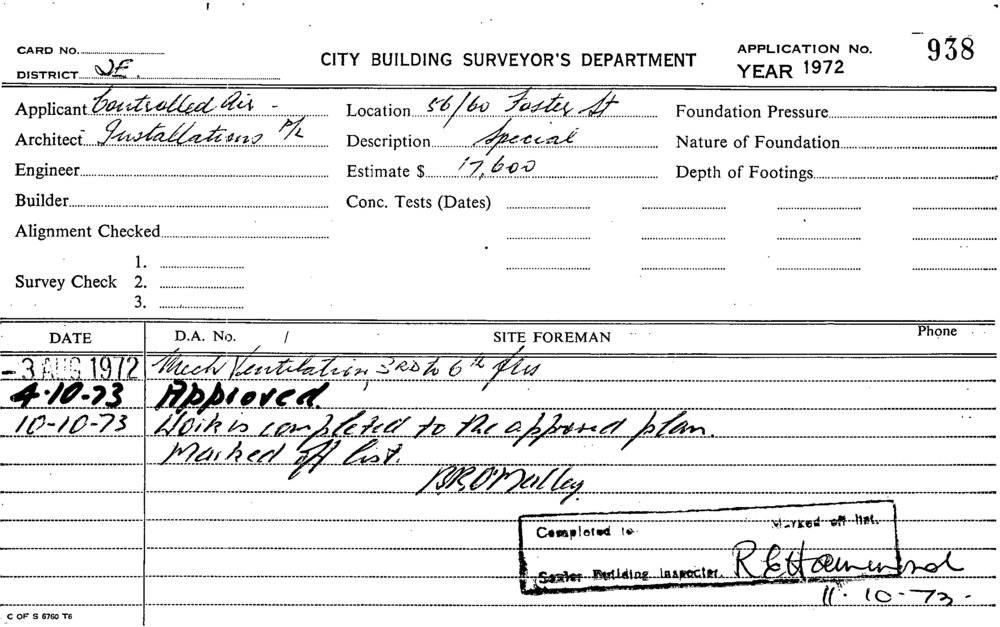 CARD No.
DISTRICT
CITY BUILDING SURVEYOR'S DEPARTMENT
APPLICATION No. 938
YEAR 1972
Applicant Controlled Air -
Location 56/60 Foster St
Foundation Pressure
Architect Installations P/L
Description Special
Nature of Foundation
Engineer
Estimate $ 17,600
Depth of Footings
Builder
Conc. Tests (Dates)
Alignment Checked
1.
Survey Check 2.
3.
DATE D.A. No. / SITE FOREMAN Phone
-3 AUG 1972 Mech Ventilation 3RD to 6th flrs
4-10-73 Approved.
10-10-73 Work is completed to the approved plan.
Marked off list.
B.R. O'Malley
Completed to Marked off list.
Senior Building Inspector. R E Hammond
11-10-73-
C OF S 6760 T6